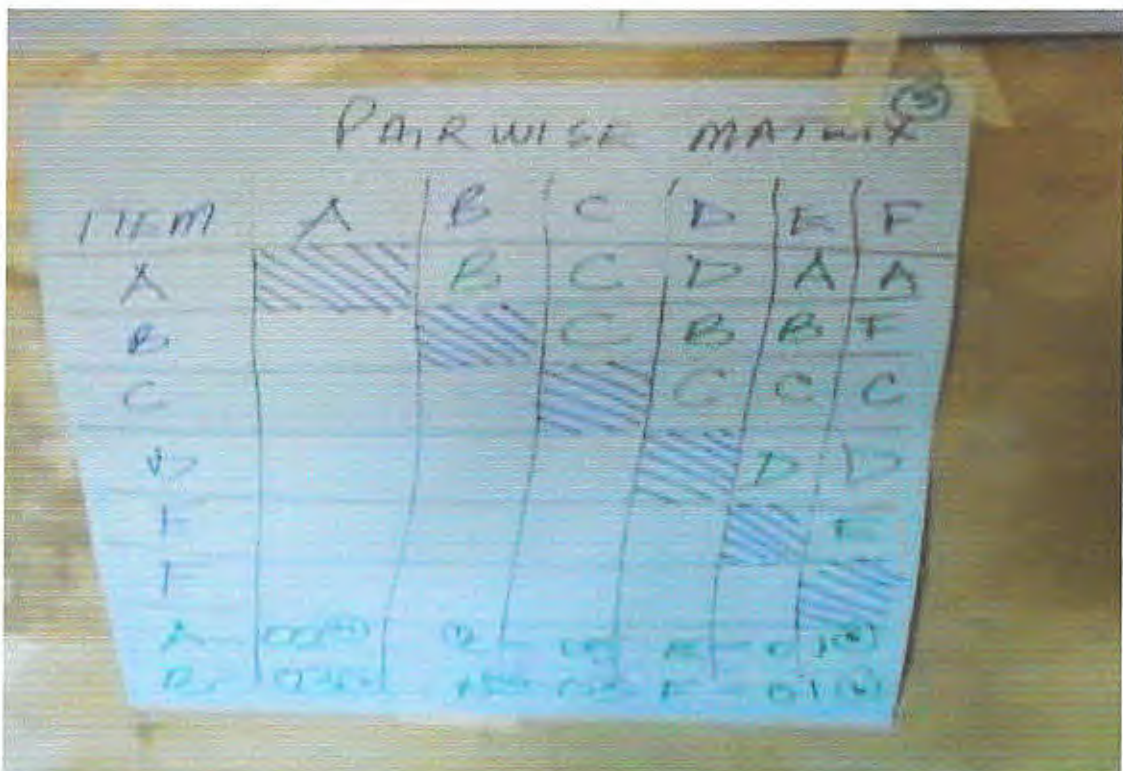 PAIRWISE MATRIX
ITEM A B C D E F
A B C D A A
B C B B F
C C C C
D D D
E E
F
A